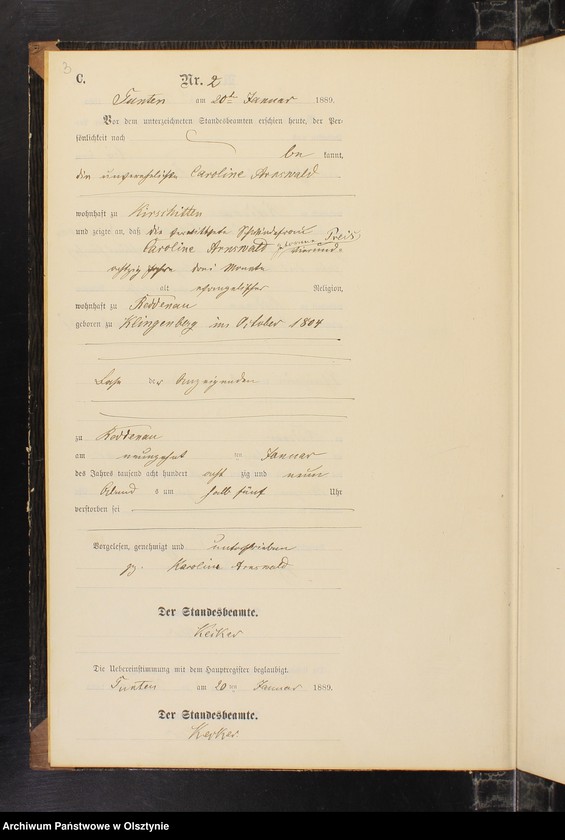 3
C.
Nr. 2
Tunten am 20ten Januar 1889.
Vor dem unterzeichneten Standesbeamten erschien heute, der Per-
sönlichkeit nach
be kannt,
die unverehelichte Caroline Arnswald
wohnhaft zu Hirschitten
und zeigte an, daß die verwittwete Preis
Caroline Arnswald geborne
achtzig Jahre drei Monate
alt evangelischer Religion,
wohnhaft zu Roddenau
geboren zu Klingenberg im October 1804
der Anzeigenden
zu Roddenau
am neunzehnt en Januar
des Jahres tausend acht hundert acht zig und neun
Abend s um halb fünf Uhr
verstorben sei
Vorgelesen, genehmigt und unterschrieben
gz. Karoline Arnswald
Der Standesbeamte.
Keiker
Die Uebereinstimmung mit dem Hauptregister beglaubigt.
Tunten am 20ten Januar 1889.
Der Standesbeamte.
Keiker
Archiwum Państwowe w Olsztynie